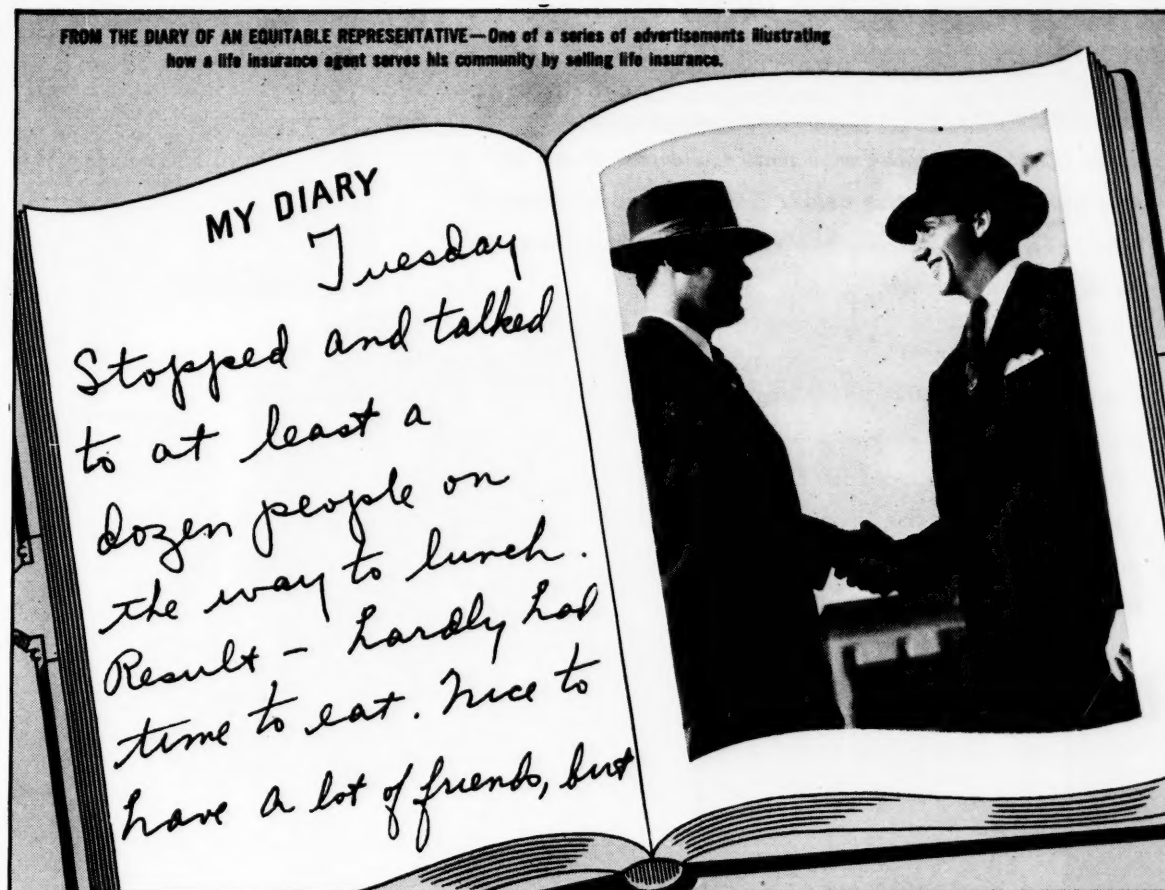 FROM THE DIARY OF AN EQUITABLE REPRESENTATIVE—One of a series of advertisements illustrating
how a life insurance agent serves his community by selling life insurance.
MY DIARY
Tuesday
Stopped and talked
to at least a
dozen people on
the way to lunch.
Result - hardly had
time to eat. Nice to
have a lot of friends, but